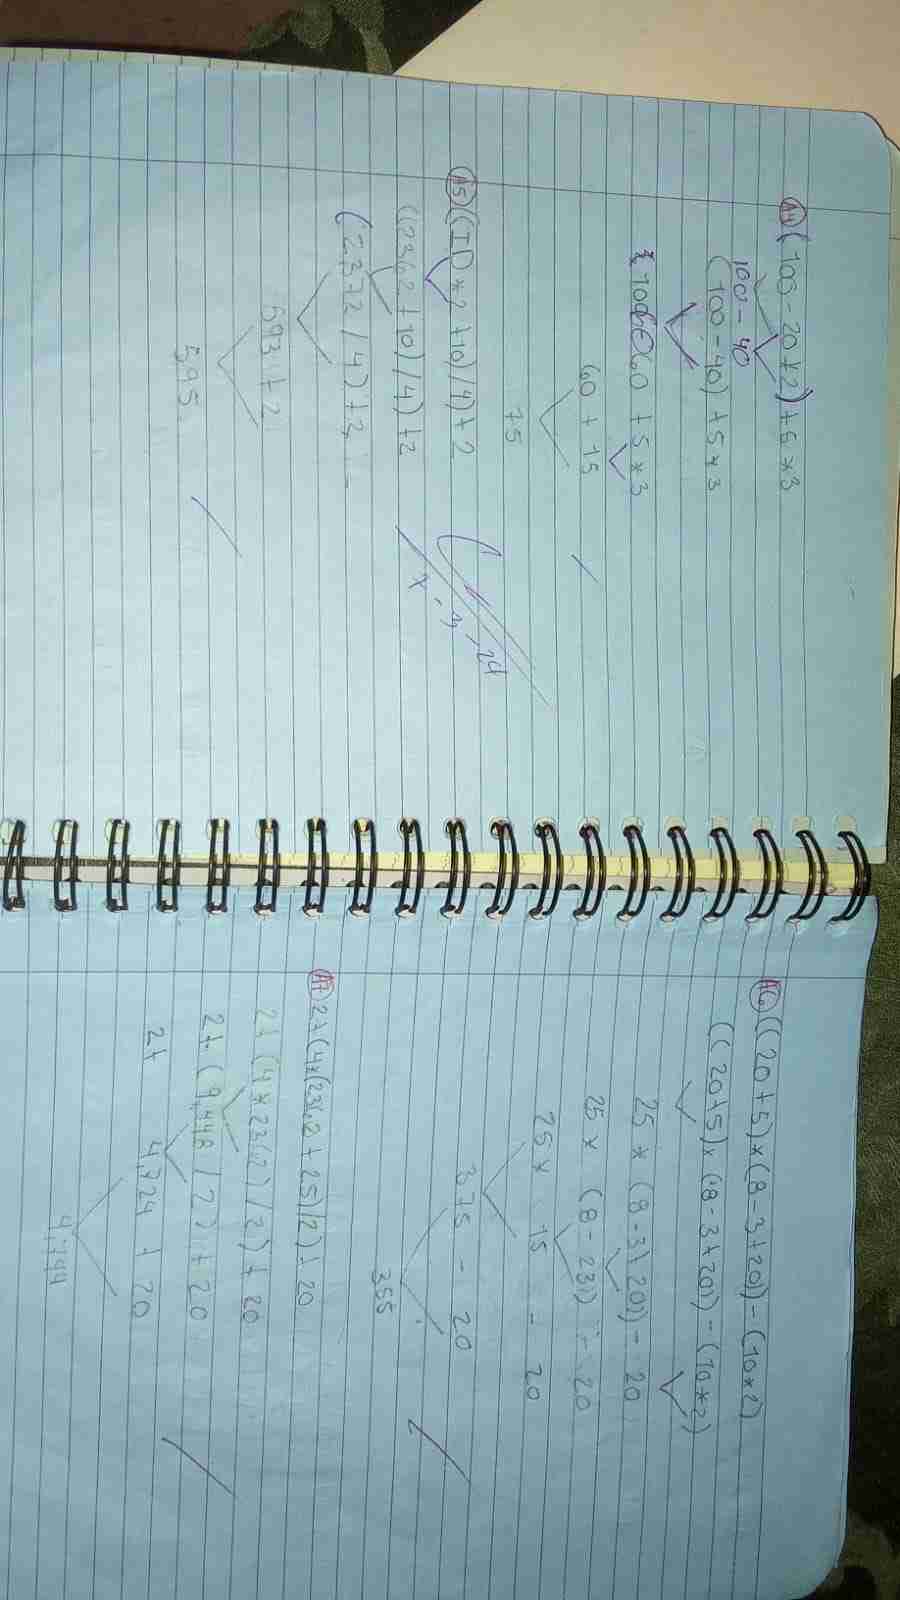 A4 (100 - 20 * 2) + 5 * 3
100 - 40
(100 - 40) + 5 * 3
60 + 5 * 3
60 + 15
75
A5 (ID * 2 + 10) / 4) + 2
((2362 + 10) / 4) + 2
(2372 / 4) + 2
593 + 2
595
A6 ((20 + 5) * (8 - 3 + 20)) - (10 * 2)
((20 + 5) * (8 - 3 + 20)) - (10 * 2)
25 * (8 - 3 + 20)) - 20
25 * (8 - 23)) - 20
25 * 15 - 20
375 - 20
355
A7 2 + (4 * (2362 + 25) / 2) + 20
2 + (4 * 2362) / 2) + 20
2 + (9,448 / 2) + 20
2 + 4,724 + 20
4,744